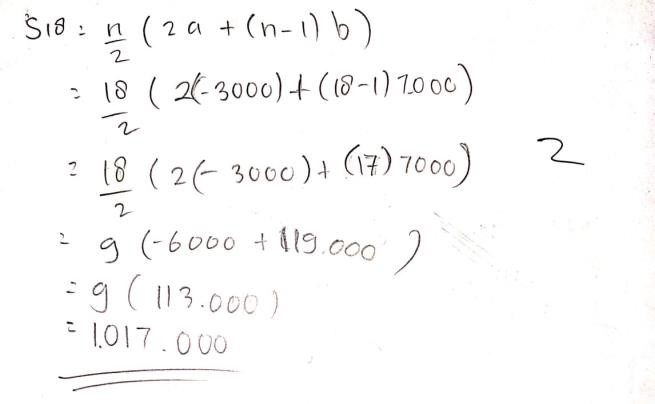 S18 = n/2 (2a + (n-1) b)
= 18/2 (2(-3000) + (18-1) 7.000)
= 18/2 (2(-3000) + (17) 7000)
2
= 9 (-6000 + 119.000)
= 9 (113.000)
= 1.017.000